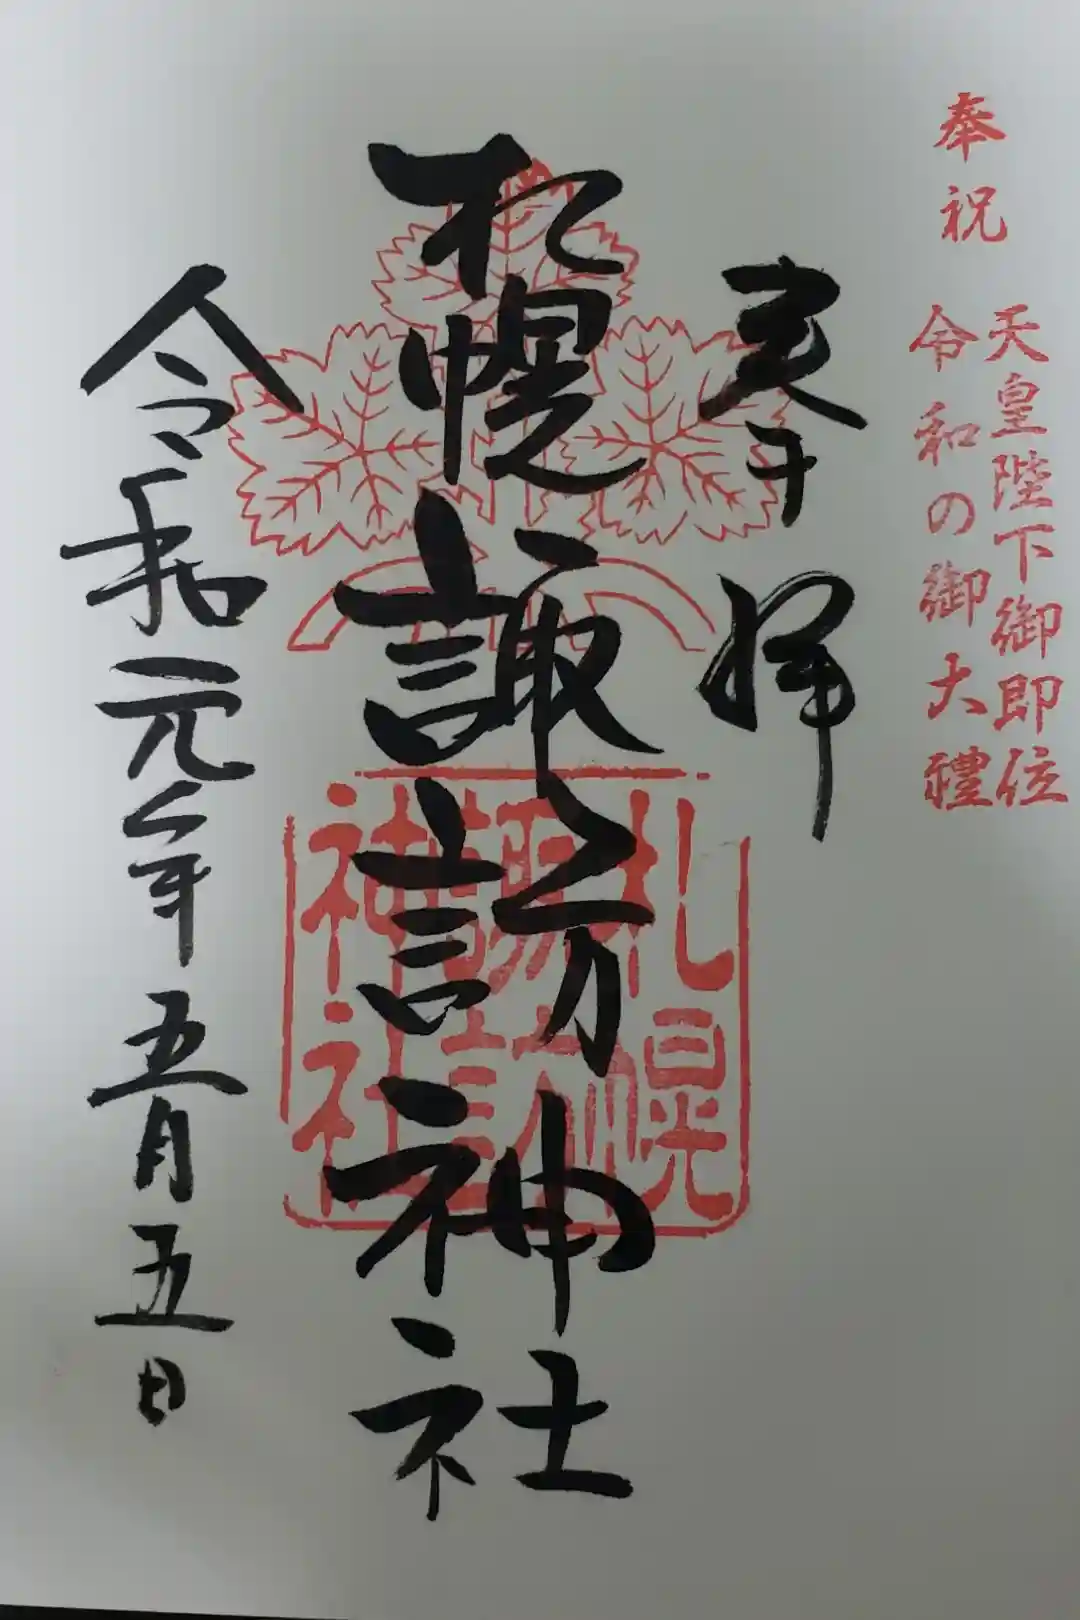 奉祝
天皇陛下御即位
令和の御大禮
奉拝
札幌諏訪神社
札幌
諏訪
神社
令和元年五月五日